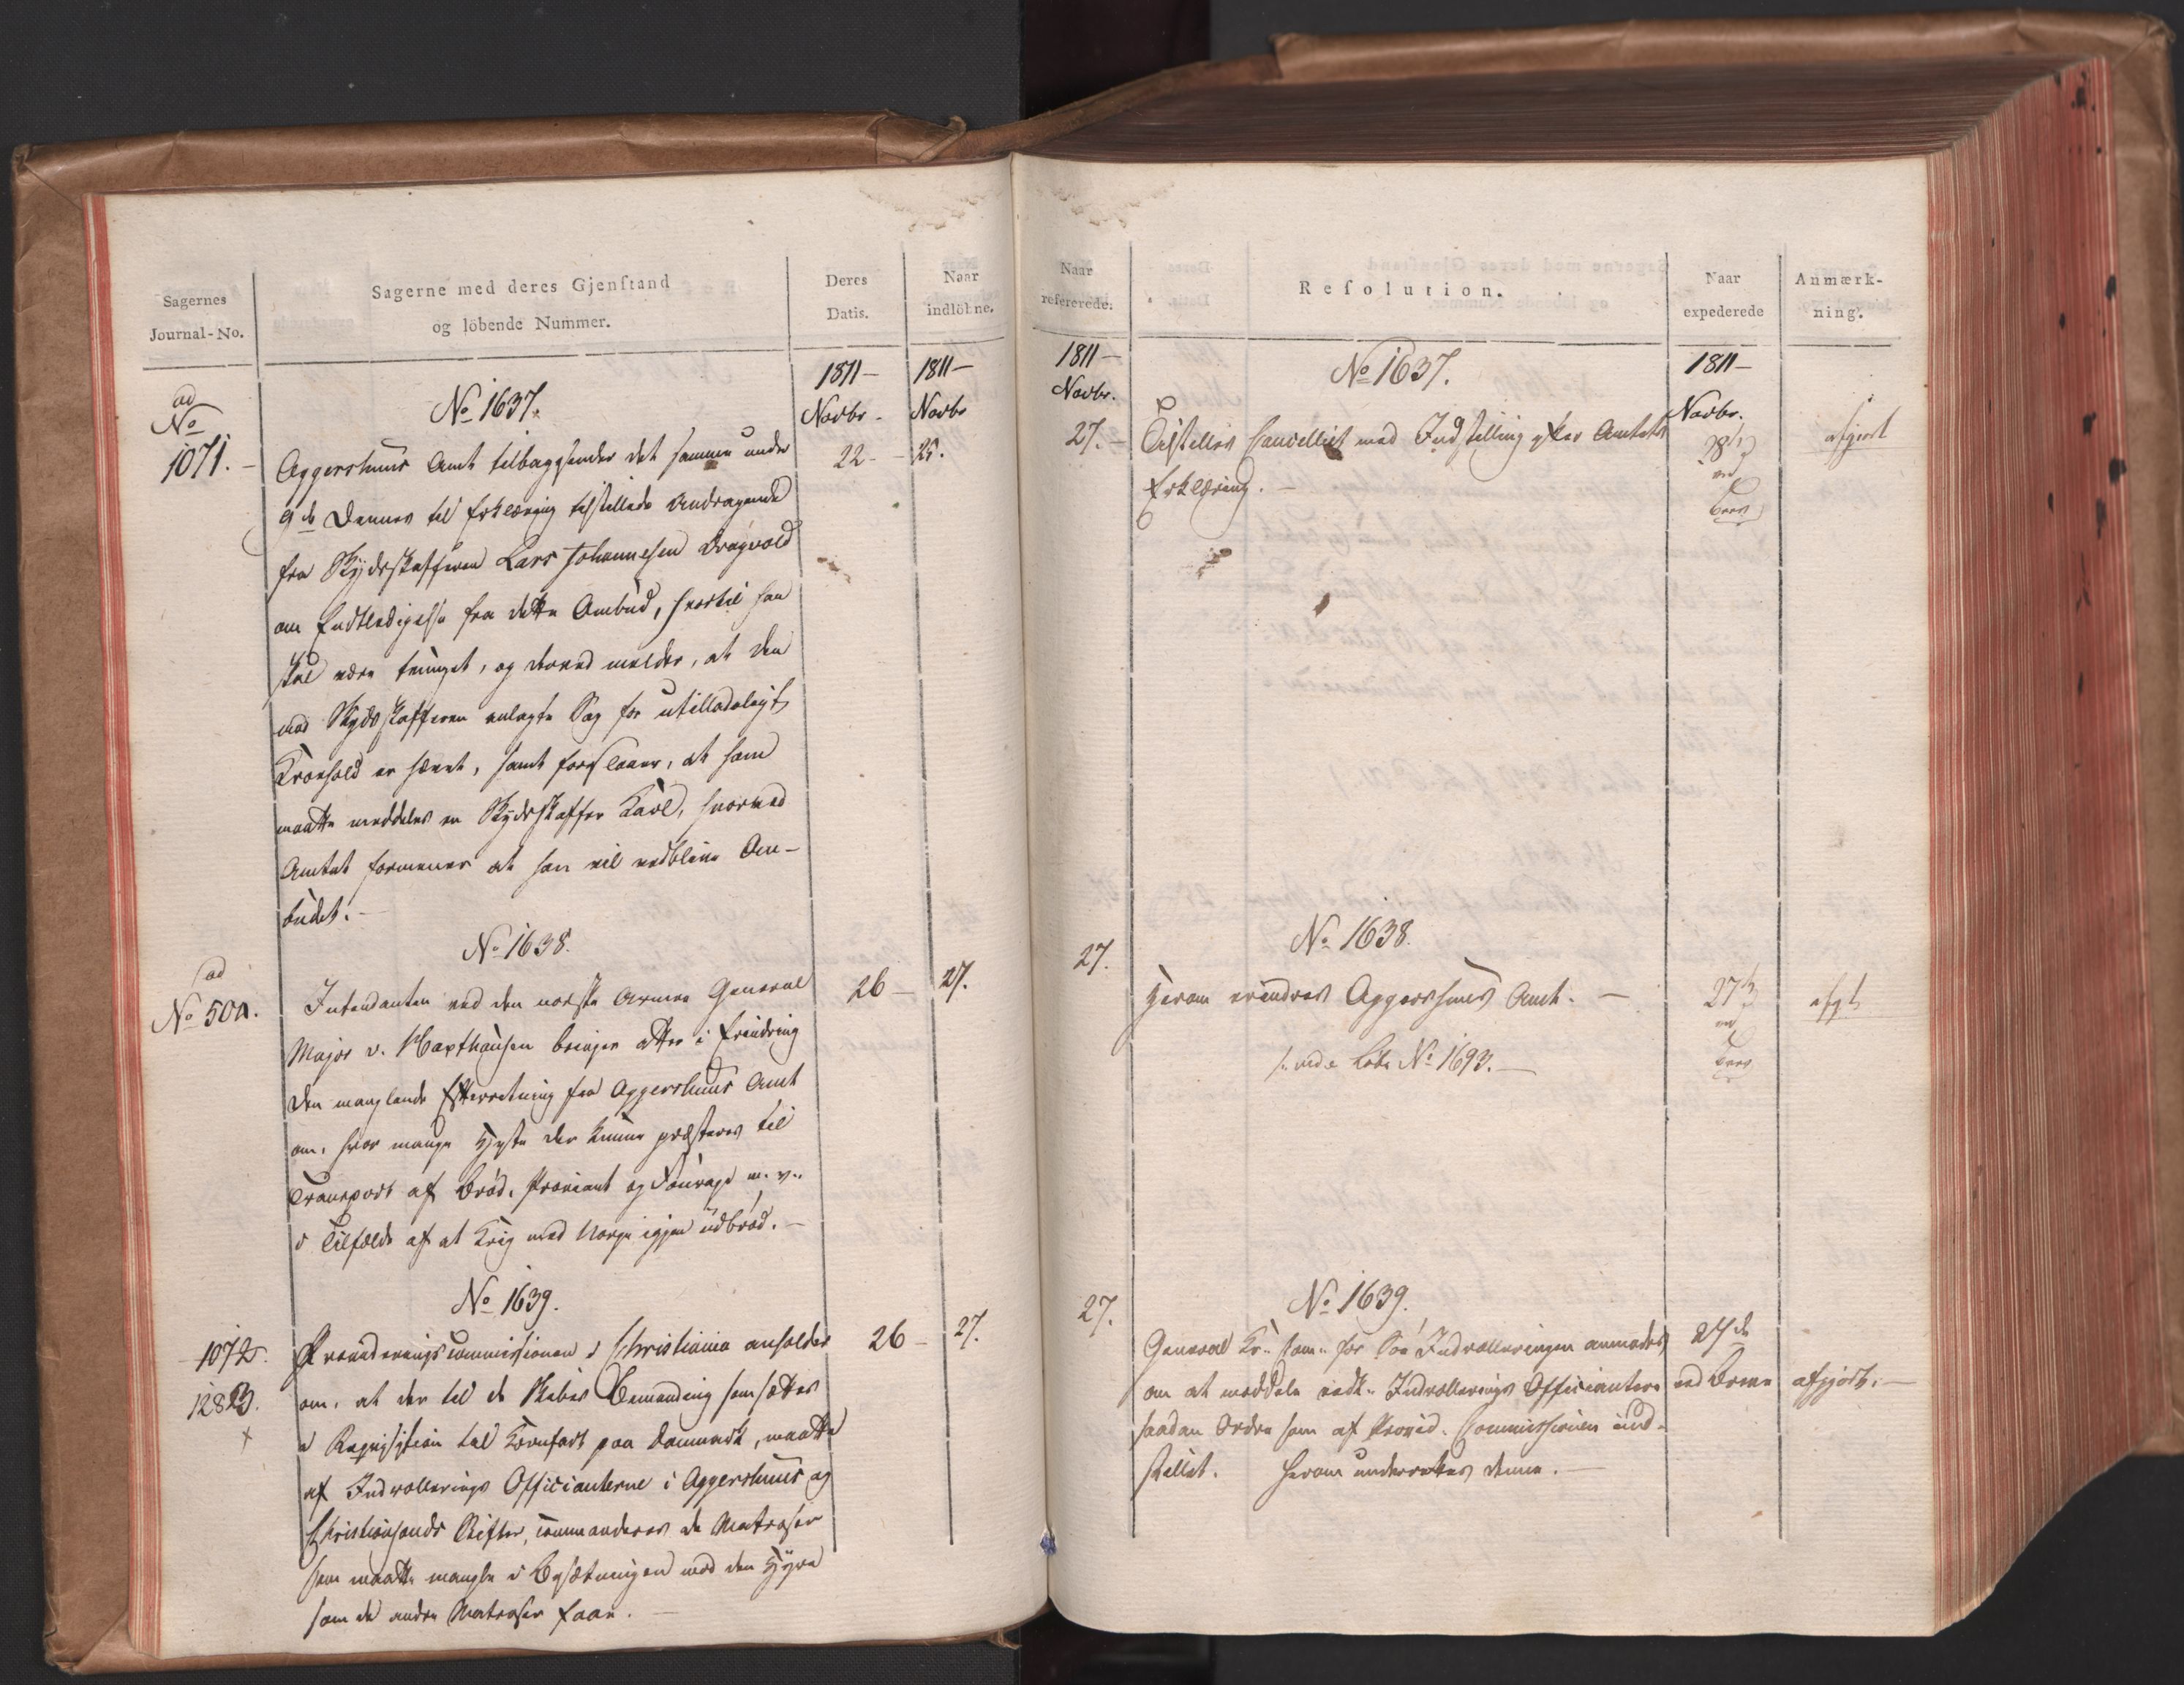 Sagernes
Journal-No.
Sagerne med deres Gjenstand
og löbende Nummer.
Deres
Datis.
Naar
indlöbne.
1811 –
Novbr –
1811 –
Novbr
ad
No
1071. –
No 1637.
Aggershuus Amt tilbagesender det samme under
9de dennes til Erklæring tilstillede Andragende
fra Skydsskafferen Lars Johannesen Dragvold
om Entledigelse fra dette Ombud, hvortil han
skal være tvunget, og derved melder, at den
mod Skydsskafferen anlagte Sag for utilladeligt
Kroehold er hævet, samt foreslaaer, at ham
maatte meddeles en Skydsskaffer Karl, hvorved
Amtet formener at han vil vedblive Om-
budet. –
22 –
25.
ad
No 500.
No 1638.
Intendanten ved den norske Armee General
Major v. Haxthausen bringer atter i Erindring
den manglende Efterretning fra Aggershuus Amt
om, hvor mange Heste der kunne præsteres til
Transport af Brød, Proviant og Fourage m. v.
i Tilfælde af at Krig med Norge igjen udbrød. –
26 –
27.
1072.
1283.
x
No 1639.
Provideringscommissionen i Christiania anholder
om, at der til de Skibes Bemanding som sættes
i Reqvisition til Kornfart paa Danmark, maatte
af Indrollerings Officianterne i Aggershuus og
Christiansands Stifter, commanderes de Matroser
som maatte mangle i Besætningen mod den Hyre
som de andre Matroser faae. –
26 –
27.
Naar
refererede.
Resolution.
Naar
expederede
Anmærk-
ning.
1811 –
Novbr.
27. –
No 1637.
Tilstilles Cancelliet med Indstilling efter Amtets
Erklæring. –
1811 –
Novbr.
ved
afgjort
27.
No 1638.
Herom erindres Aggershuus Amt. –
/: vide Løbe No 1693. –
ved
afgt
27.
No 1639.
General Kr. Com. for Søe Indrolleringen anmodes
om at meddele vedk. Indrollerings Officiantere
saadan Ordre som af Provid. Commissionen ind-
stillet. Herom underrettes denne. –
27de
ved Breve
afgjort. –